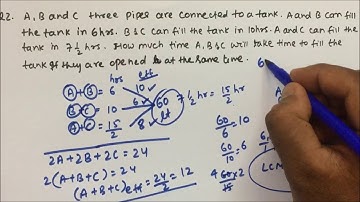 22. A, B and C three pipes are connected to a tank. A and B can fill
the tank in 6hrs. B & C can fill the tank in 10hrs. A and C can fill the
tank in 7 1/2 hrs. How much time A, B & C will take time to fill the
tank if they are opened at the same time.
hrs eff
A + B = 6 10
B + C = 10 6
A + C = 15/2 8
60
lt
7 1/2 hr = 15/2 hr
60/10 = 6
60/6 = 10
4 60 × 2
15
2A + 2B + 2C = 24
2(A + B + C) = 24
(A + B + C) eff = 24/2 = 12
LCM